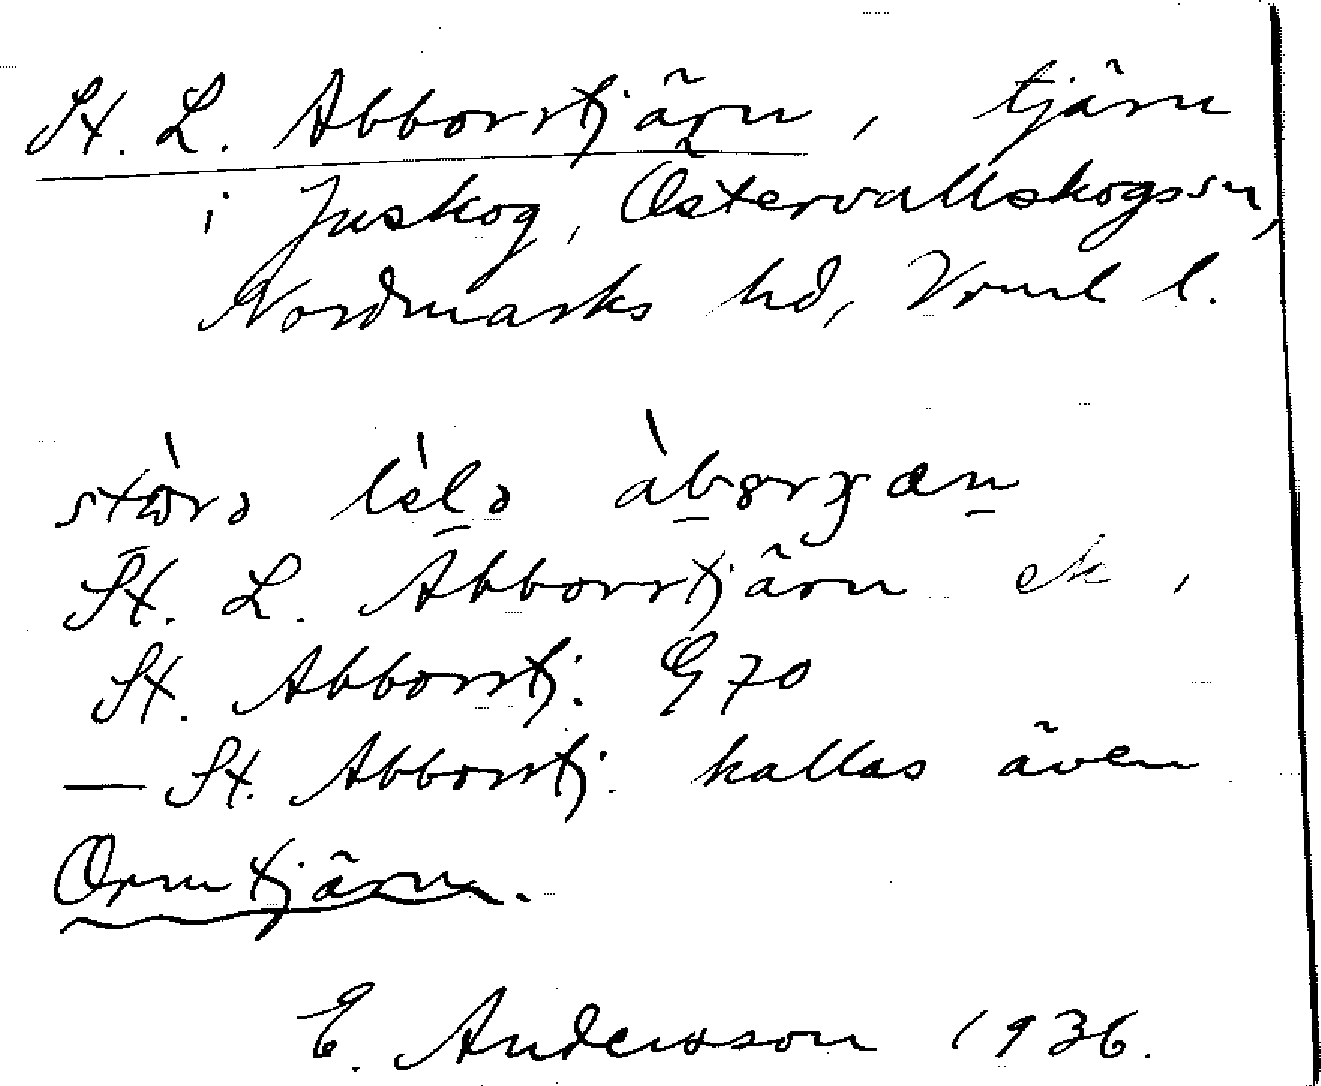 St. L. Abborrtjärn, tjärn
i Juskog, Östervallskogs sn,
Nordmarks hd, Vrml l.
St. L. Abborrtjärn ek,
St. Abborrtj. G 70
— St. Abborrtj. kallas även
Ormtjärn.
E. Andersson 1936.